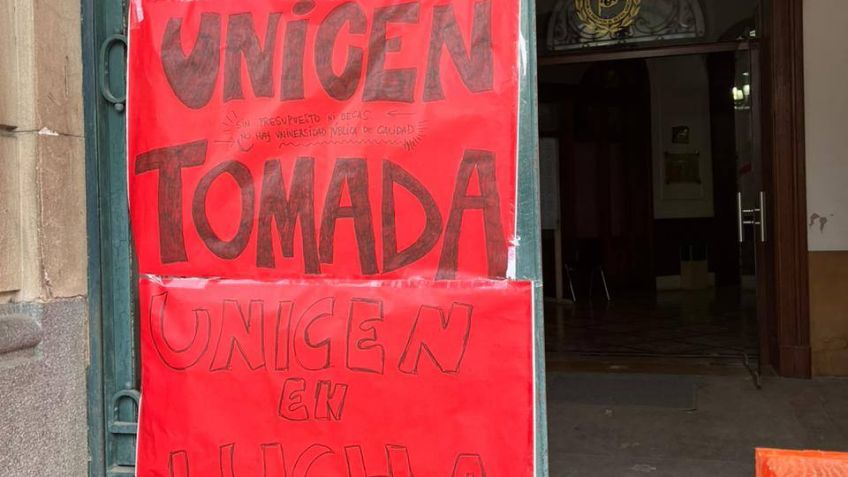 UNICEN
SIN PRESUPUESTO NI BECAS
NO HAY UNIVERSIDAD PÚBLICA DE CALIDAD
TOMADA
UNICEN
EN
LUCHA